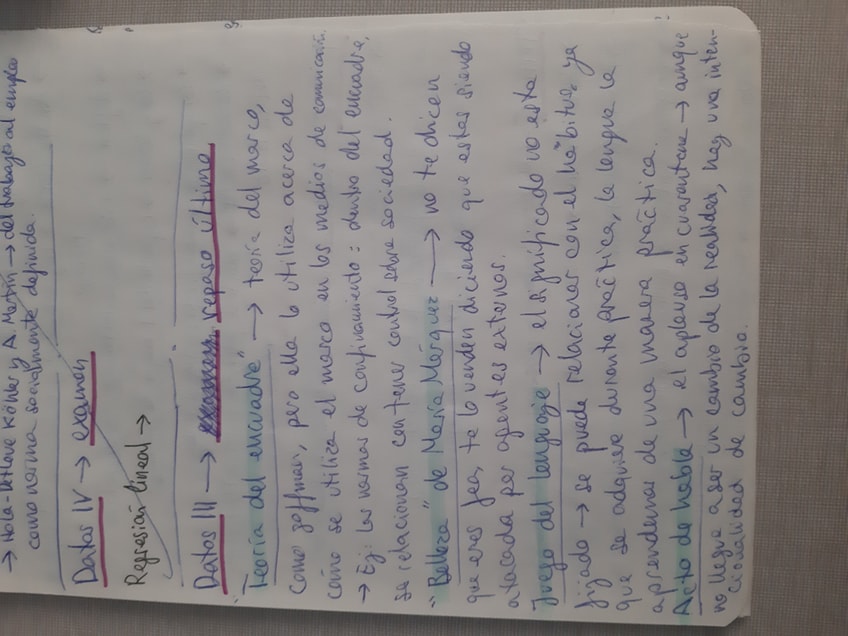 → Hola-Detlave Köhler y A. Martín → del trabajo al empleo
como norma socialmente definida.
Datos IV → examen
Regresión lineal →
Datos III → repaso último
"Teoría del encuadre" → teoría del marco,
como goffman, pero ella lo utiliza acerca de
cómo se utiliza el marco en los medios de comunicación.
→ Ej: las normas de confinamiento: dentro del encuadre,
se relacionan con tener control sobre sociedad.
"Belleza" de María Márquez → no te dicen
que eres fea, te lo venden diciendo que estas siendo
atacada por agentes externos.
Juego del lenguaje → el significado no esta
fijado → se puede relacionar con el habitus, ya
que se adquiere durante práctica, la lengua la
aprendemos de una manera práctica.
Acto de habla → el aplauso en cuarentena → aunque
no llegue a ser un cambio de la realidad, hay una inten-
cionalidad de cambio.